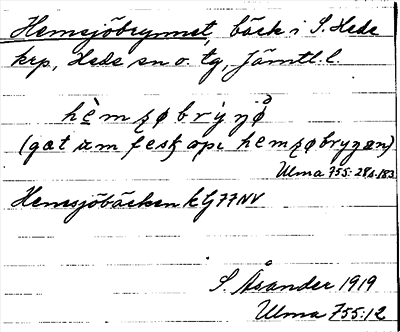 Hemsjöbrynnet, bäck i S. Hede
krp, Hede sn o. tg, Jämtl. l.
hèmʂøbrýŋə̊
(gat um fesk opi hemʂøbryŋən)
Ulma 755:28 s. 183
Hemsjöbäcken kG77NV
S. Åsander 1919
Ulma 755:12